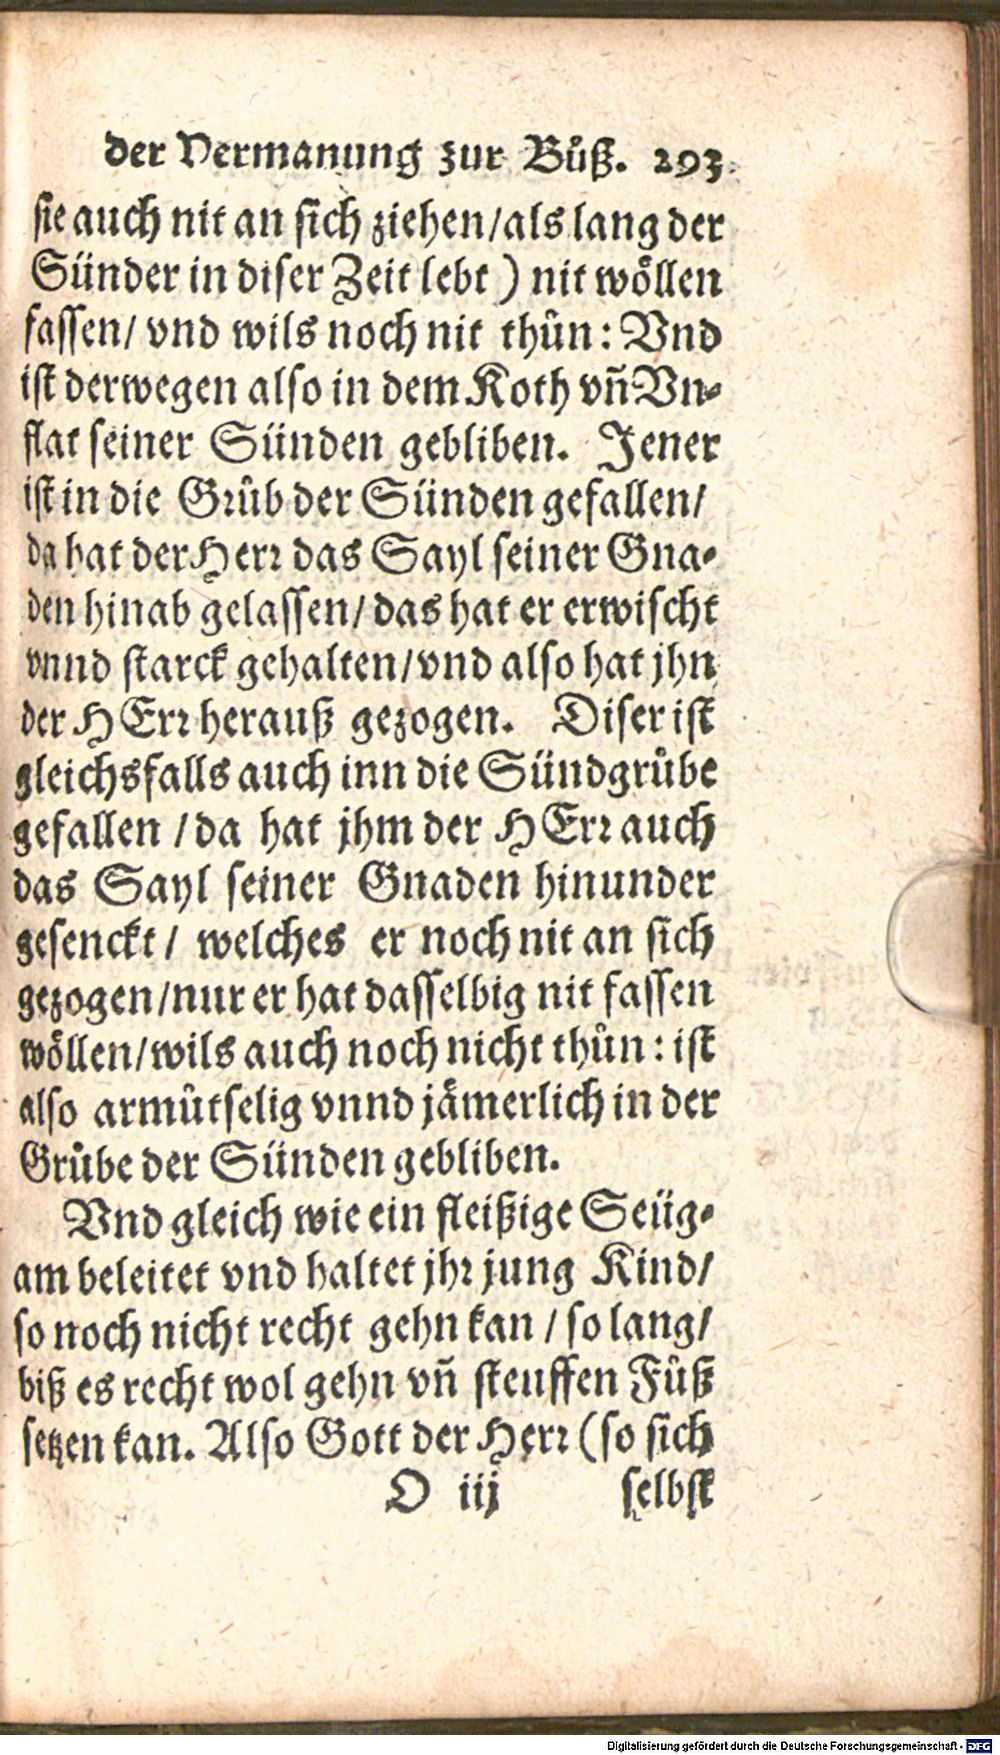 der Vermanung zur Bůß. 293.
sie auch nit an sich ziehen/als lang der
Sünder in diser Zeit lebt) nit wöllen
fassen/ vnd wils noch nit thůn: Vnd
ist derwegen also in dem Koth vñ Vn-
flat seiner Sünden gebliben. Jener
ist in die Grůb der Sünden gefallen/
da hat der Herr das Sayl seiner Gna-
den hinab gelassen/das hat er erwischt
vnnd starck gehalten/vnd also hat jhn
der HErr herauß gezogen. Diser ist
gleichsfalls auch inn die Sündgrůbe
gefallen /da hat jhm der HErr auch
das Sayl seiner Gnaden hinunder
gesenckt/ welches er noch nit an sich
gezogen/nur er hat dasselbig nit fassen
wöllen/wils auch noch nicht thůn: ist
also armůtselig vnnd jämerlich in der
Grůbe der Sünden gebliben.
Vnd gleich wie ein fleißige Seüg-
am beleitet vnd haltet jhr jung Kind/
so noch nicht recht gehn kan / so lang/
biß es recht wol gehn vñ steuffen Fůß
setzen kan. Also Gott der Herr (so sich
O iij selbst
Digitalisierung gefördert durch die Deutsche Forschungsgemeinschaft - DFG